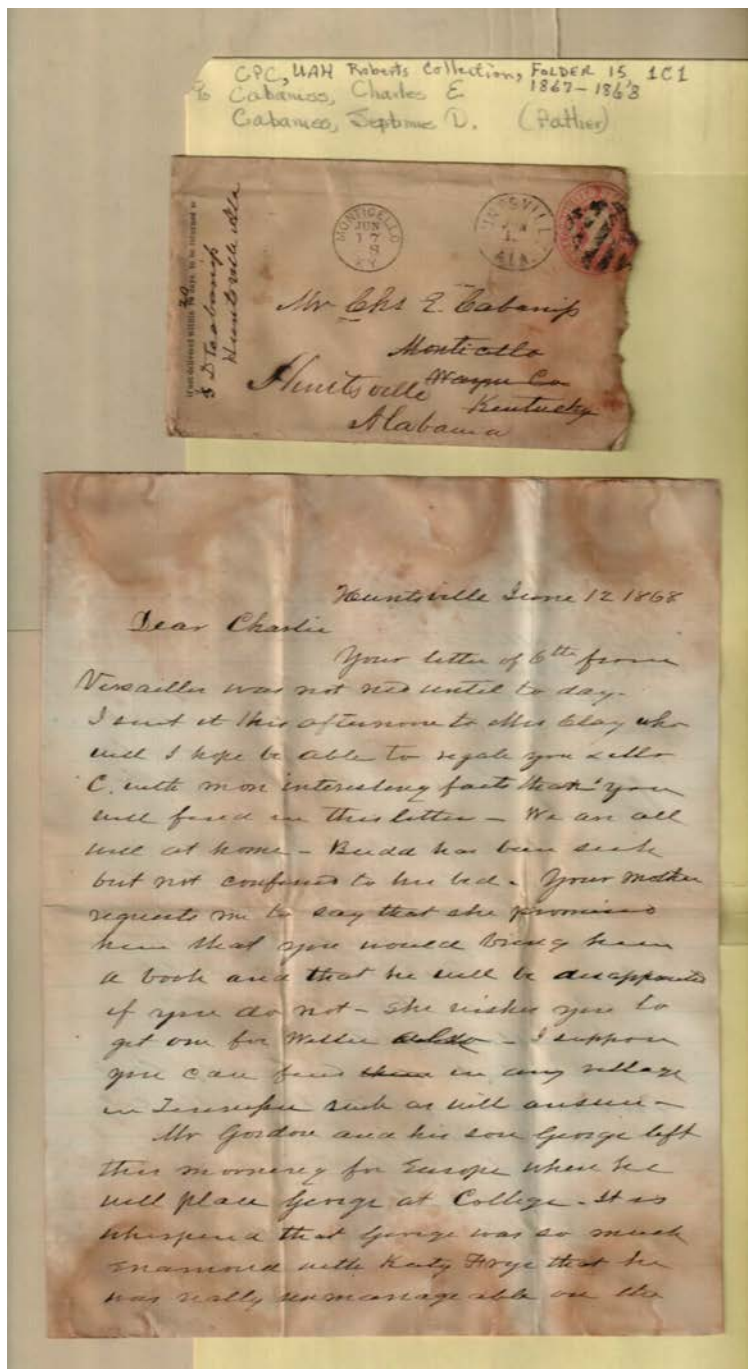 CPC, UAH Roberts Collection, FOLDER 15, 1C1
Cabaniss, Charles E 1867-1868
Cabaniss, Septimus D. (Father)
If not delivered within 30 days, to be returned to
S D Cabaniss
Huntsville Ala
MONTICELLO
JUN
17
HUNTSVILLE
ALA.
Mr Chs E. Cabaniss
Monticello
Huntsville Wayne Co
Kentucky
Alabama
Huntsville June 12 1868
Dear Charlie
Your letter of 6th from
Versailles was not recd until to day.
I sent it this afternoon to Mrs Clay who
will I hope be able to regale you &
C. with more interesting facts than you
will find in this letter - We are all
well at home - Budd has been sick
but not confined to his bed. Your mother
requests me to say that she promised
him that you would bring him
a book and that he will be disappointed
if you do not - She wishes you to
get one for Willie also - I suppose
you can find them in any village
in Tennessee such as will answer -
Mr Gordon and his son George left
this morning for Europe where he
will place George at College. It is
whispered that George was so much
enamored with Katy Frye that he
was really unmanageable on the